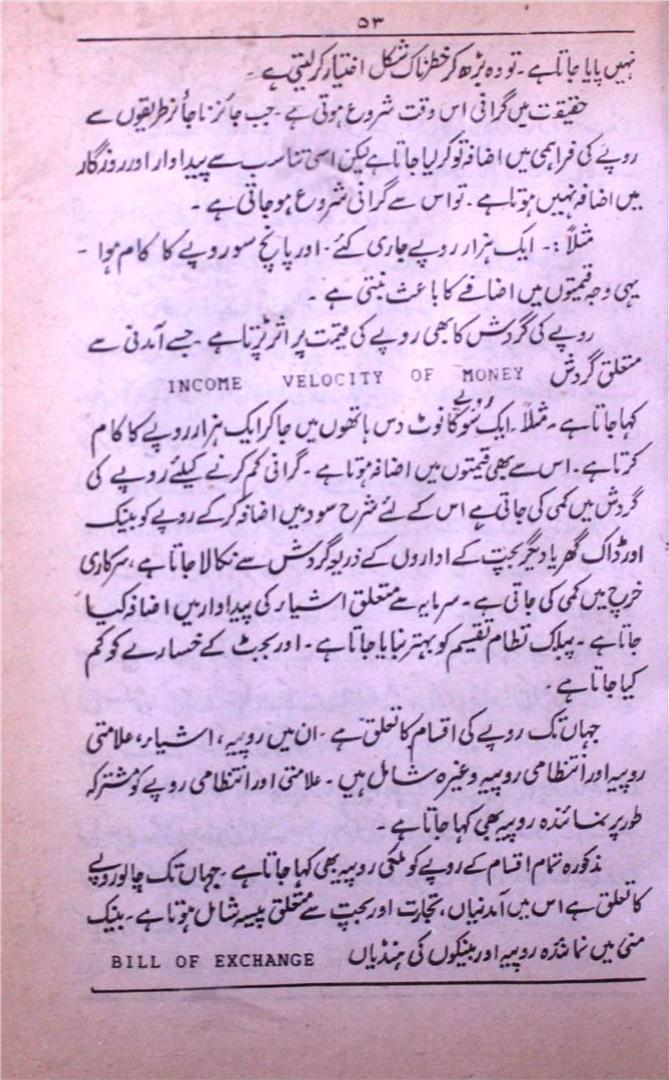 ۵۳
نہیں پایا جاتا ہے۔ تو وہ بڑھ کر خطرناک شکل اختیار کر لیتی ہے۔
حقیقت میں گرانی اس وقت شروع ہوتی ہے۔ جب جائز ناجائز طریقوں سے
روپے کی فراہمی میں اضافہ تو کر لیا جاتا ہے لیکن اسی تناسب سے پیداوار اور روزگار
میں اضافہ نہیں ہوتا ہے۔ تو اس سے گرانی شروع ہو جاتی ہے۔
مثلاً :۔ ایک ہزار روپے جاری کئے۔ اور پانچ سو روپے کا کام ہوا۔
یہی وجہ قیمتوں میں اضافے کا باعث بنتی ہے۔
روپے کی گردش کا بھی روپے کی قیمت پر اثر پڑتا ہے۔ جسے آمدنی سے
متعلق گردش INCOME VELOCITY OF MONEY
کہا جاتا ہے۔ مثلاً۔ ایک سو روپے کا نوٹ دس ہاتھوں میں جا کر ایک ہزار روپے کا کام
کرتا ہے۔ اس سے بھی قیمتوں میں اضافہ ہوتا ہے۔ گرانی کم کرنے کیلئے روپے کی
گردش میں کمی کی جاتی ہے اس کے لئے شرح سود میں اضافہ کر کے روپے کو بینک
اور ڈاک گھر یا دیگر بچت کے اداروں کے ذریعہ گردش سے نکالا جاتا ہے، سرکاری
خرچ میں کمی کی جاتی ہے۔ سرمایہ سے متعلق اشیاء کی پیداوار میں اضافہ کیا
جاتا ہے۔ پبلک نظام تقسیم کو بہتر بنایا جاتا ہے۔ اور بجٹ کے خسارے کو کم
کیا جاتا ہے۔
جہاں تک روپے کی اقسام کا تعلق ہے۔ ان میں روپیہ، اشیاء، علامتی
روپیہ اور انتظامی روپیہ وغیرہ شامل ہیں۔ علامتی اور انتظامی روپے کو مشترکہ
طور پر نمائندہ روپیہ بھی کہا جاتا ہے۔
مذکورہ تمام اقسام کے روپے کو ملکی روپیہ بھی کہا جاتا ہے۔ جہاں تک چالو روپے
کا تعلق ہے اس میں آمدنیاں، تجارت اور بچت سے متعلق پیسہ شامل ہوتا ہے۔ بینک
منی میں نمائندہ روپیہ اور بینکوں کی ہنڈیاں BILL OF EXCHANGE